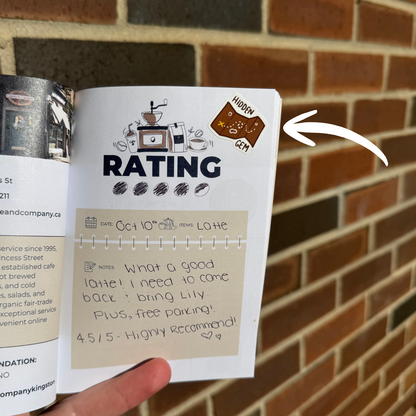 HIDDEN
GEM
RATING
DATE: Oct 10th ITEMS: Latte
NOTES: What a good
latte! I need to come
back & bring Lily
Plus, free parking!
4.5/5 - Highly Recommend!
s St
211
eandcompany.ca
service since 1995,
ncess Street
established cafe
ot brewed
, and cold
es, salads, and
organic fair-trade
exceptional service
venient online
NDATION:
NO
companykingston